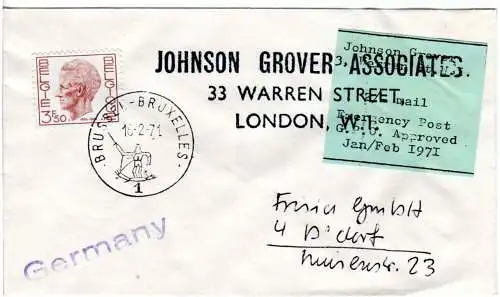 BELGIQUE
BELGIË
3F50
BRUSSEL-BRUXELLES
16-2-71
1
JOHNSON GROVER ASSOCIATES.
33 WARREN STREET,
LONDON, W.1.
Johnson Grover
3,
Air Mail
Emergency Post
G.P.O. Approved
Jan/Feb 1971
GmbH
4 D'dorf
23
Germany